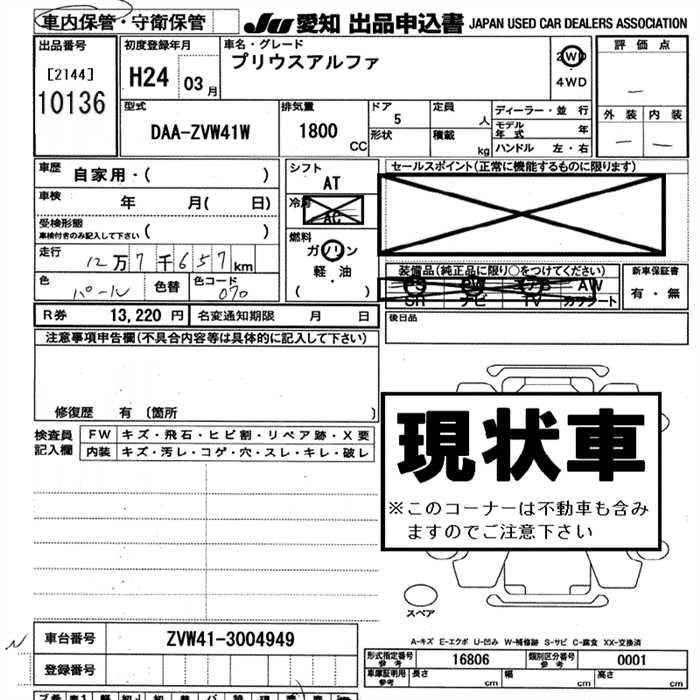 車内保管・守衛保管
JU 愛知 出品申込書 JAPAN USED CAR DEALERS ASSOCIATION
出品番号 [2144] 10136
初度登録年月 H24 03月
車名・グレード プリウスアルファ
2WD 4WD
評価点 —
外装 — 内装 —
型式 DAA-ZVW41W
排気量 1800 CC
ドア 5
形状
定員 人
積載 kg
ディーラー・並行
モデル年式 年
ハンドル 左・右
車歴 自家用・( )
車検 年 月( 日)
受検形態
車検付きのみ記入して下さい ( )
走行 12万7千657km
色 パール 色替 色コード 070
シフト AT
冷房 AC
燃料 ガソリン
軽・油
( )
セールスポイント(正常に機能するものに限ります)
装備品(純正品に限り○をつけてください)
AW
SR ナビ TV カワシート
新車保証書
有・無
R券 13,220円 名変通知期限 月 日
後日品
注意事項申告欄(不具合内容等は具体的に記入して下さい)
修復歴 有 〔箇所 〕
検査員記入欄
FW キズ・飛石・ヒビ割・リペア跡・X要
内装 キズ・汚レ・コゲ・穴・スレ・キレ・破レ
現状車
※このコーナーは不動車も含み
ますのでご注意下さい
スペア
A-キズ E-エクボ U-凹み W-補修跡 S-サビ C-腐食 XX-交換済
車台番号 ZVW41-3004949
登録番号
型式指定番号 参考 16806 類別区分番号 参考 0001
車庫証明用 参考 長さ cm 幅 cm 高さ cm